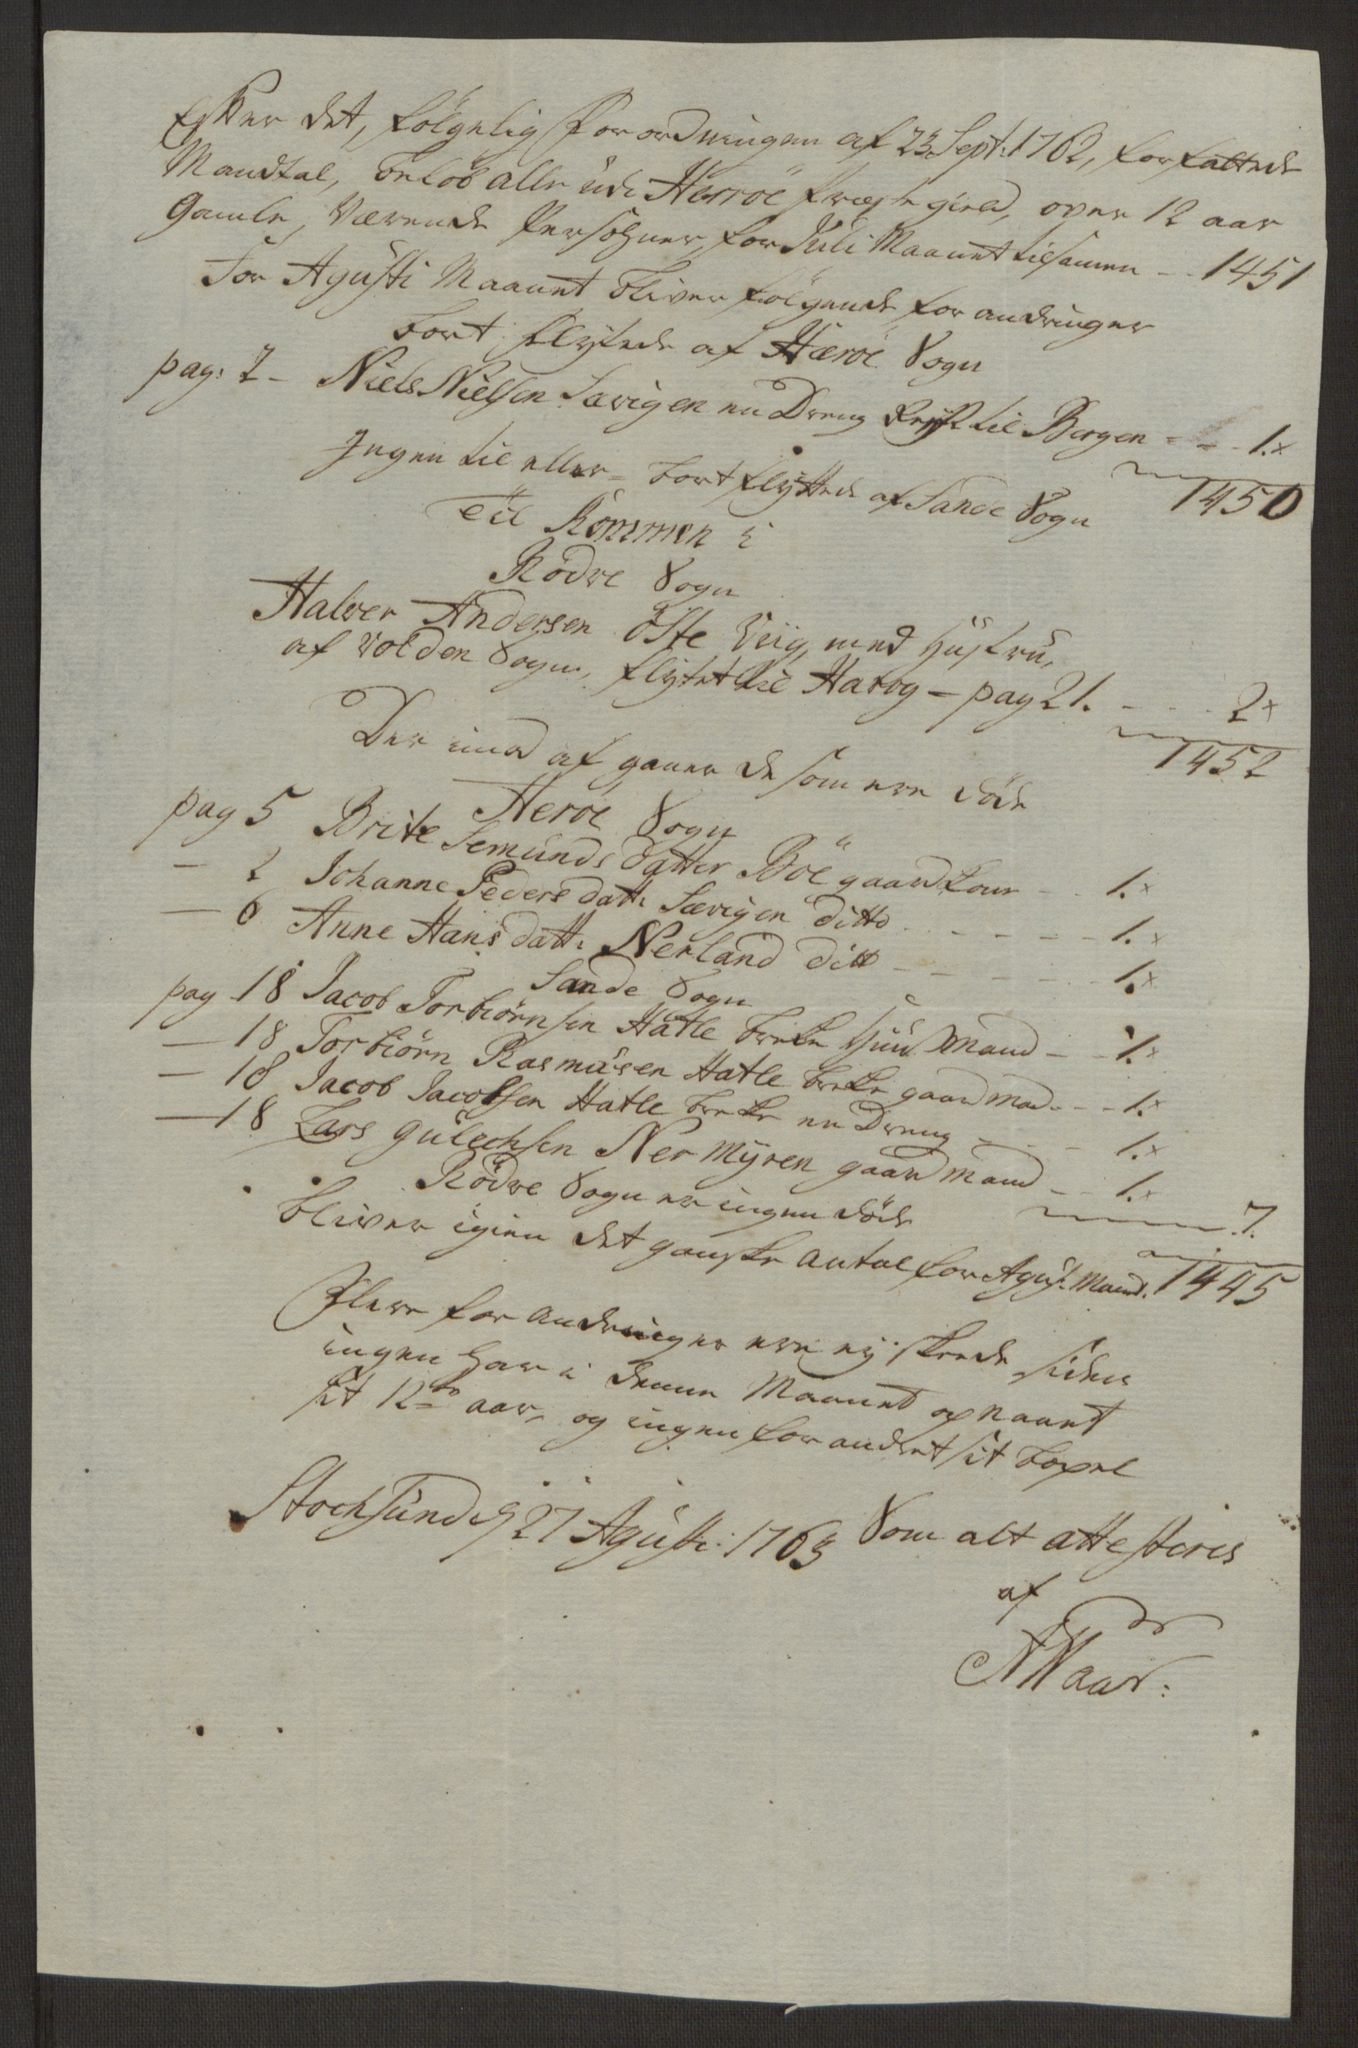 Efter det, fölgelig Forordningen af 23 Sept: 1762, forfattede
Mandtal, belöb alle udi Herröe Præstegield, over 12 aar
Gamle, Værende Persohner, for Juli Maanet tilsamen - - 1451
For Agusti Maanet bliver fölgende forandringer
bort flytede af Hæröe Sogn
pag: 2 - Niels Nielsen Sævigen en Dreng Reist til Bergen - - - 1.x
1450
Ingen til eller bort flyttede af Sande Sogn
Til Kommen i
Rödve Sogn
Halver Andersen Öste Viig, med Hustru,
af Volden Sogn, flytet til Harog - pag 21. - - - 2x
1452
Der imod af gaaer de som ere döde
Heröe Sogn
pag 5 Brite Semunds datter Böe gaardkone - - 1.x
- 2 Johanne Peders datt: Sævigen ditto - - - - - 1.x
- 6 Anne Hans datt: Nerland ditto - - - - - 1.x
Sande Sogn
pag - 18 Jacob Torbiörnsen Hatle brecke Huus Mand - - 1.x
- 18 Torbiörn Rasmusen Hatle brecke gaard mand - - - 1.x
- 18 Jacob Jacobsen Hatle brecke en Dreng - - - 1.x
- 18 Lars Gulechsen Ner Myren gaard mand - - 1.x
Rödve Sogn er ingen döde 7.
bliver igien det ganske Antal for Agust: Maanet. 1445
Flere forandringer ere ej skeede siden
ingen har i denne Maanet opnaaet
sit 12te aar, og ingen forandret sit bopæl
Stochsund d 27 Agusti: 1763 Som alt attesteres
af